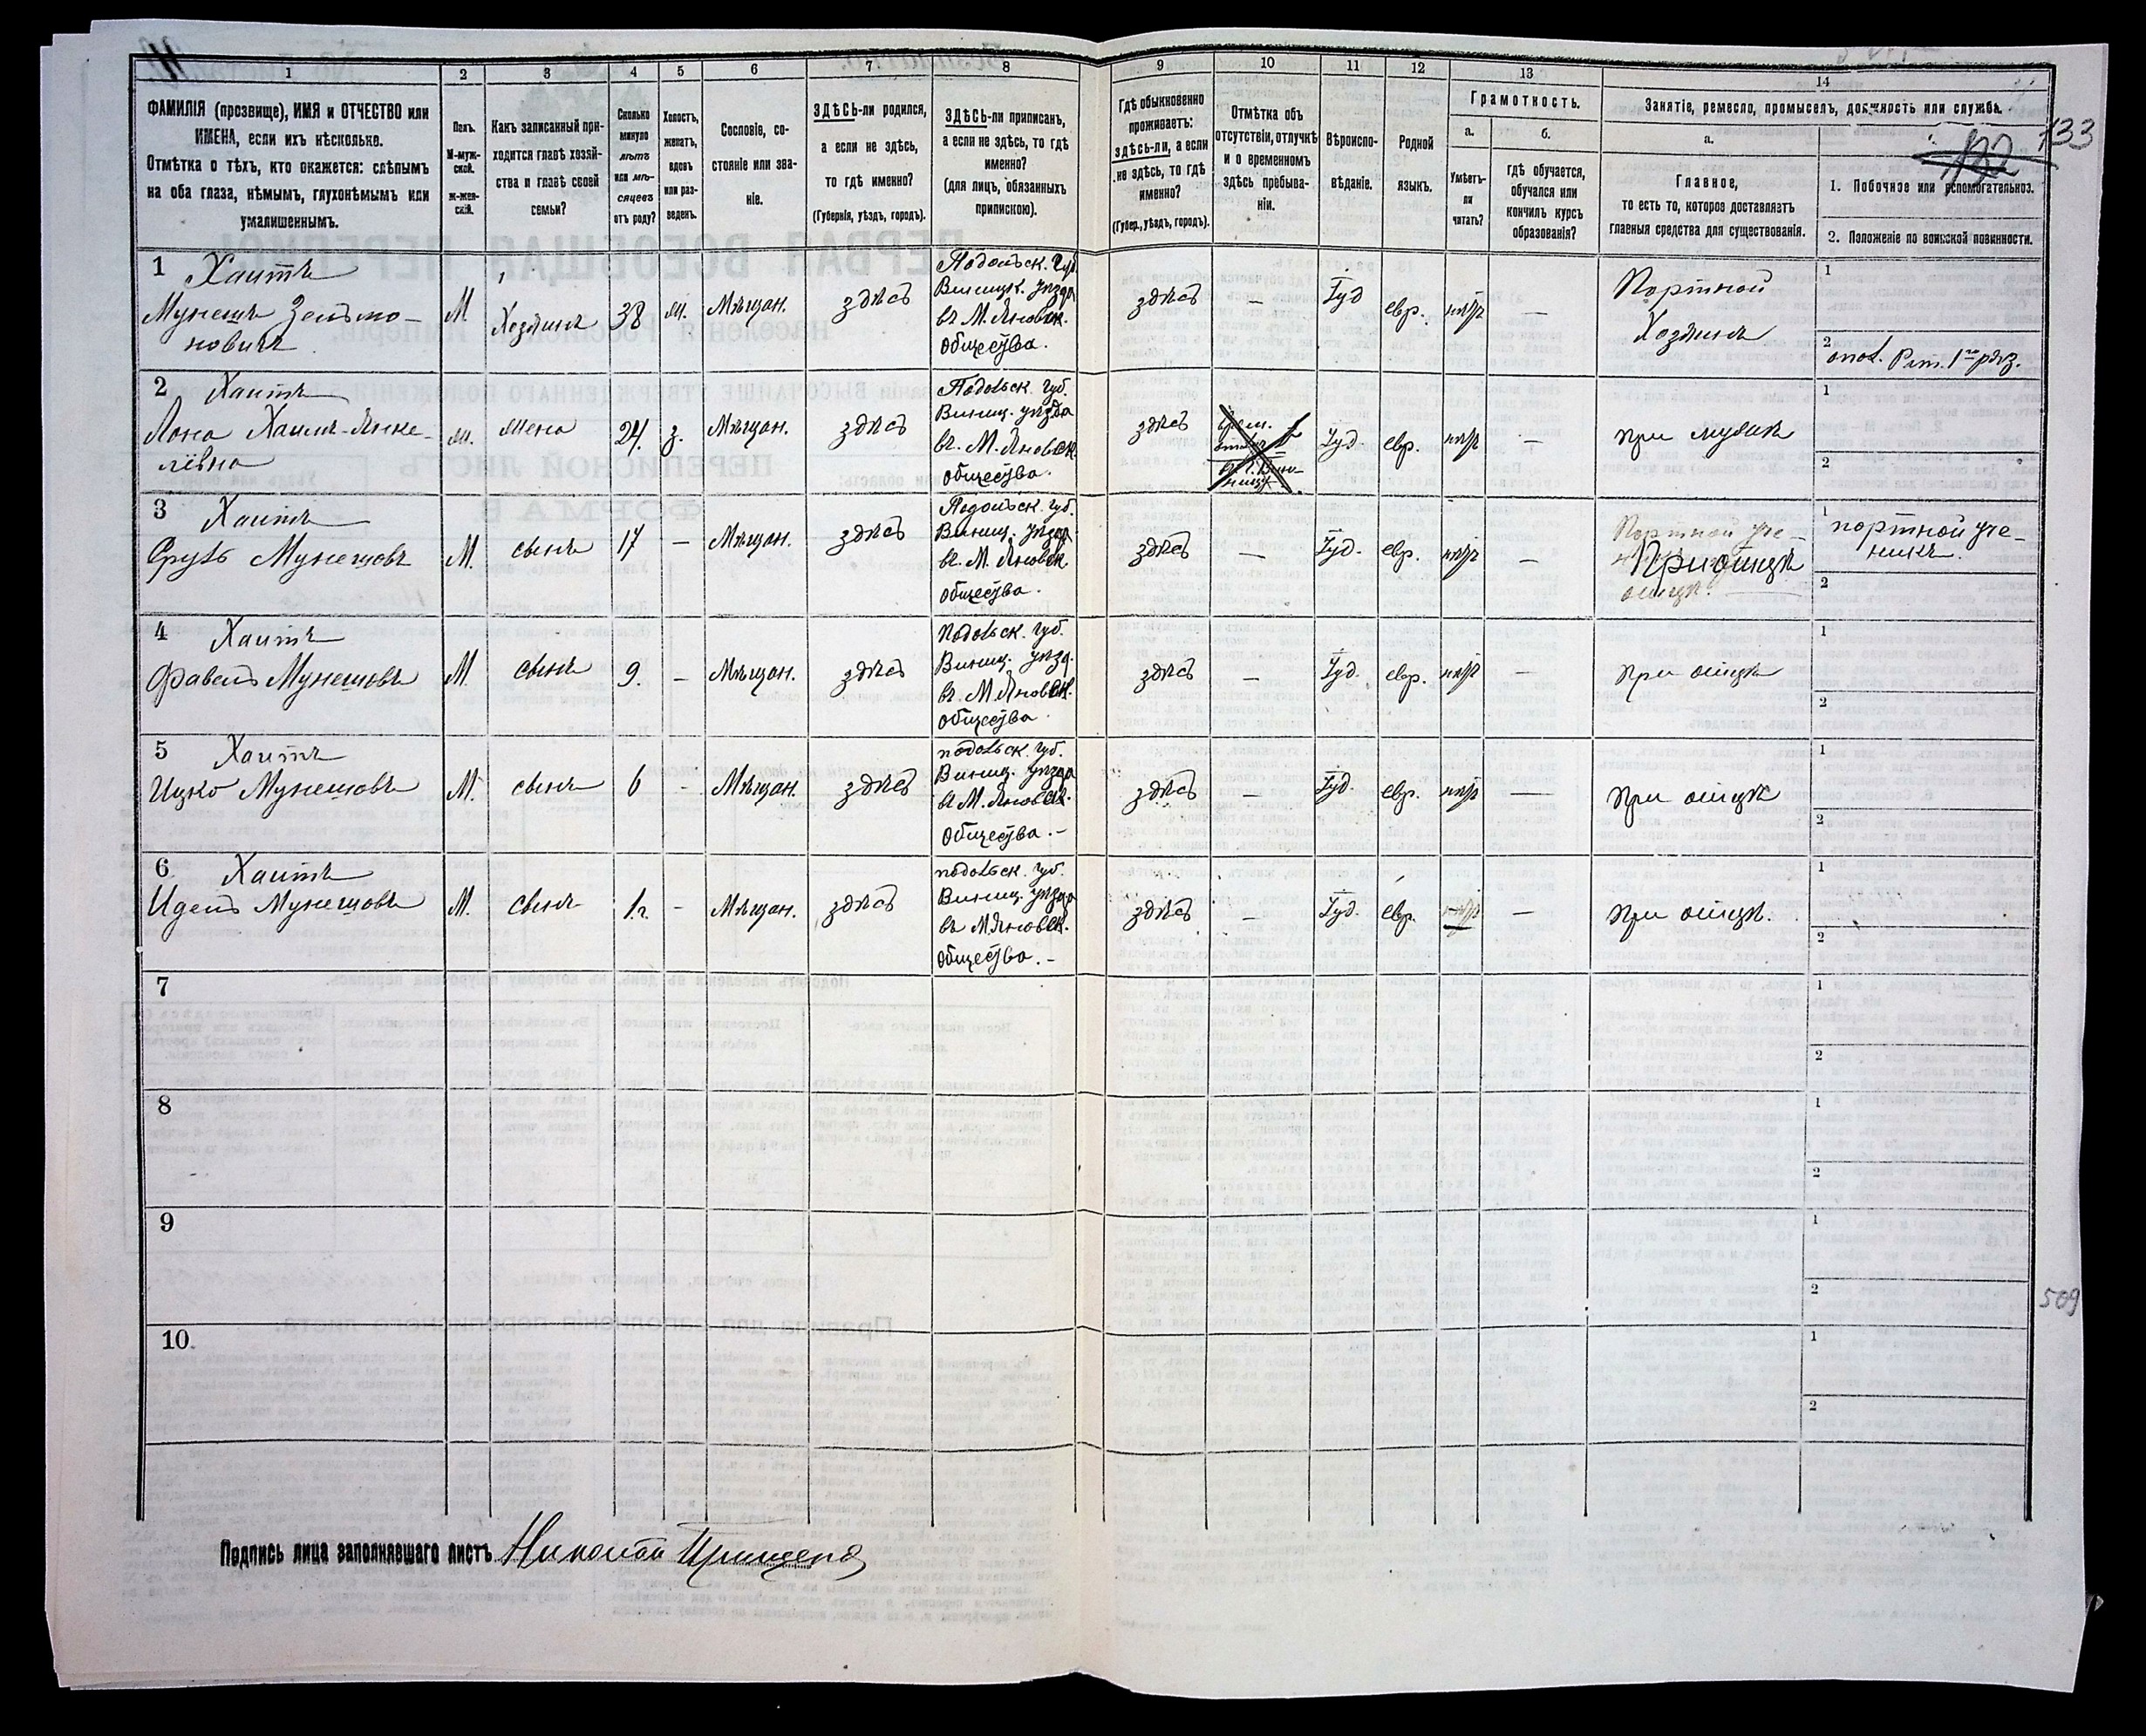 1 2 3 4 5 6 7 8 9 10 11 12 13 14
ФАМИЛІЯ (прозвище), ИМЯ и ОТЧЕСТВО или
ИМЕНА, если ихъ нѣсколько.
Отмѣтка о тѣхъ, кто окажется: слѣпымъ
на оба глаза, нѣмымъ, глухонѣмымъ или
умалишеннымъ.
Полъ.
М-муж-
ской.
ж-жен-
скій.
Какъ записанный при-
ходится главѣ хозяй-
ства и главѣ своей
семьи?
Сколько
минуло
лѣтъ
или мѣ-
сяцевъ
отъ роду?
Холостъ,
женатъ,
вдовъ
или раз-
веденъ.
Сословіе, со-
стояніе или зва-
ніе.
ЗДѢСЬ-ли родился,
а если не здѣсь,
то гдѣ именно?
(Губернія, уѣздъ, городъ).
ЗДѢСЬ-ли приписанъ,
а если не здѣсь, то гдѣ
именно?
(для лицъ, обязанныхъ
припискою).
Гдѣ обыкновенно
проживаетъ:
здѣсь-ли, а если
не здѣсь, то гдѣ
именно?
(Губер., уѣздъ, городъ).
Отмѣтка объ
отсутствіи, отлучкѣ
и о временномъ
здѣсь пребыва-
ніи.
Вѣроиспо-
вѣданіе.
Родной
языкъ.
Грамотность.
а.
Умѣетъ-
ли
читать?
б.
гдѣ обучается,
обучался или
кончилъ курсъ
образованія?
Занятіе, ремесло, промыселъ, должность или служба.
а.
Главное,
то есть то, которое доставляетъ
главныя средства для существованія.
1. Побочное или вспомогательное.
2. Положеніе по воинской повинности.
133
1 Хаитъ
Мунешъ Зельмо-
новичъ
М
Хозяинъ
38
ж.
Мѣщан.
здѣсь
Подольск. Губ.
Виницк. уѣзда
въ М. Яновск.
общества.
здѣсь
—
Іуд
евр.
нѣтъ
—
Портной
Хозяинъ
1
2 опол. Рат. 1го раз.
2 Хаитъ
Хаимъ-Янке-
лівна
ж.
жена
24.
з.
Мѣщан.
здѣсь
Подольск. губ.
Виниц. уѣзда
въ. М. Яновск
общества.
здѣсь
Іуд.
евр.
нѣтъ
—
при мужѣ
1
2
3 Хаитъ
Сруль Мунешовъ
М.
сынъ
17
—
Мѣщан.
здѣсь
Подольск. губ.
Виниц. уѣзда
въ. М. Яновск
общества.
здѣсь
—
Іуд.
евр.
нѣтъ
—
Портной уче-
При отцѣ
отцѣ.
1 портной уче-
никъ.
2
4 Хаитъ
Фавель Мунешовъ
М.
сынъ
9.
—
Мѣщан.
здѣсь
Подольск. губ.
Виниц. уѣзд.
въ. М. Яновск.
общества
здѣсь
—
Іуд.
евр.
нѣтъ
—
при отцѣ
1
2
5 Хаитъ
Ицко Мунешовъ
М.
сынъ
6
-
Мѣщан.
здѣсь
подольск. губ.
Виниц. уѣзда
въ М. Яновск.
общества. -
здѣсь
—
Іуд.
евр.
нѣтъ
—
при отцѣ
1
2
6 Хаитъ
Идель Мунешовъ
М.
сынъ
1г.
-
Мѣщан.
здѣсь
подольск. губ.
Виниц. уѣзда
въ М. Яновск.
общества. -
здѣсь
—
Іуд.
евр.
нѣтъ
—
при отцѣ.
1
2
7
1
2
8
1
2
9
1
2
509
10.
1
2
Подпись лица заполнявшаго листъ Николай